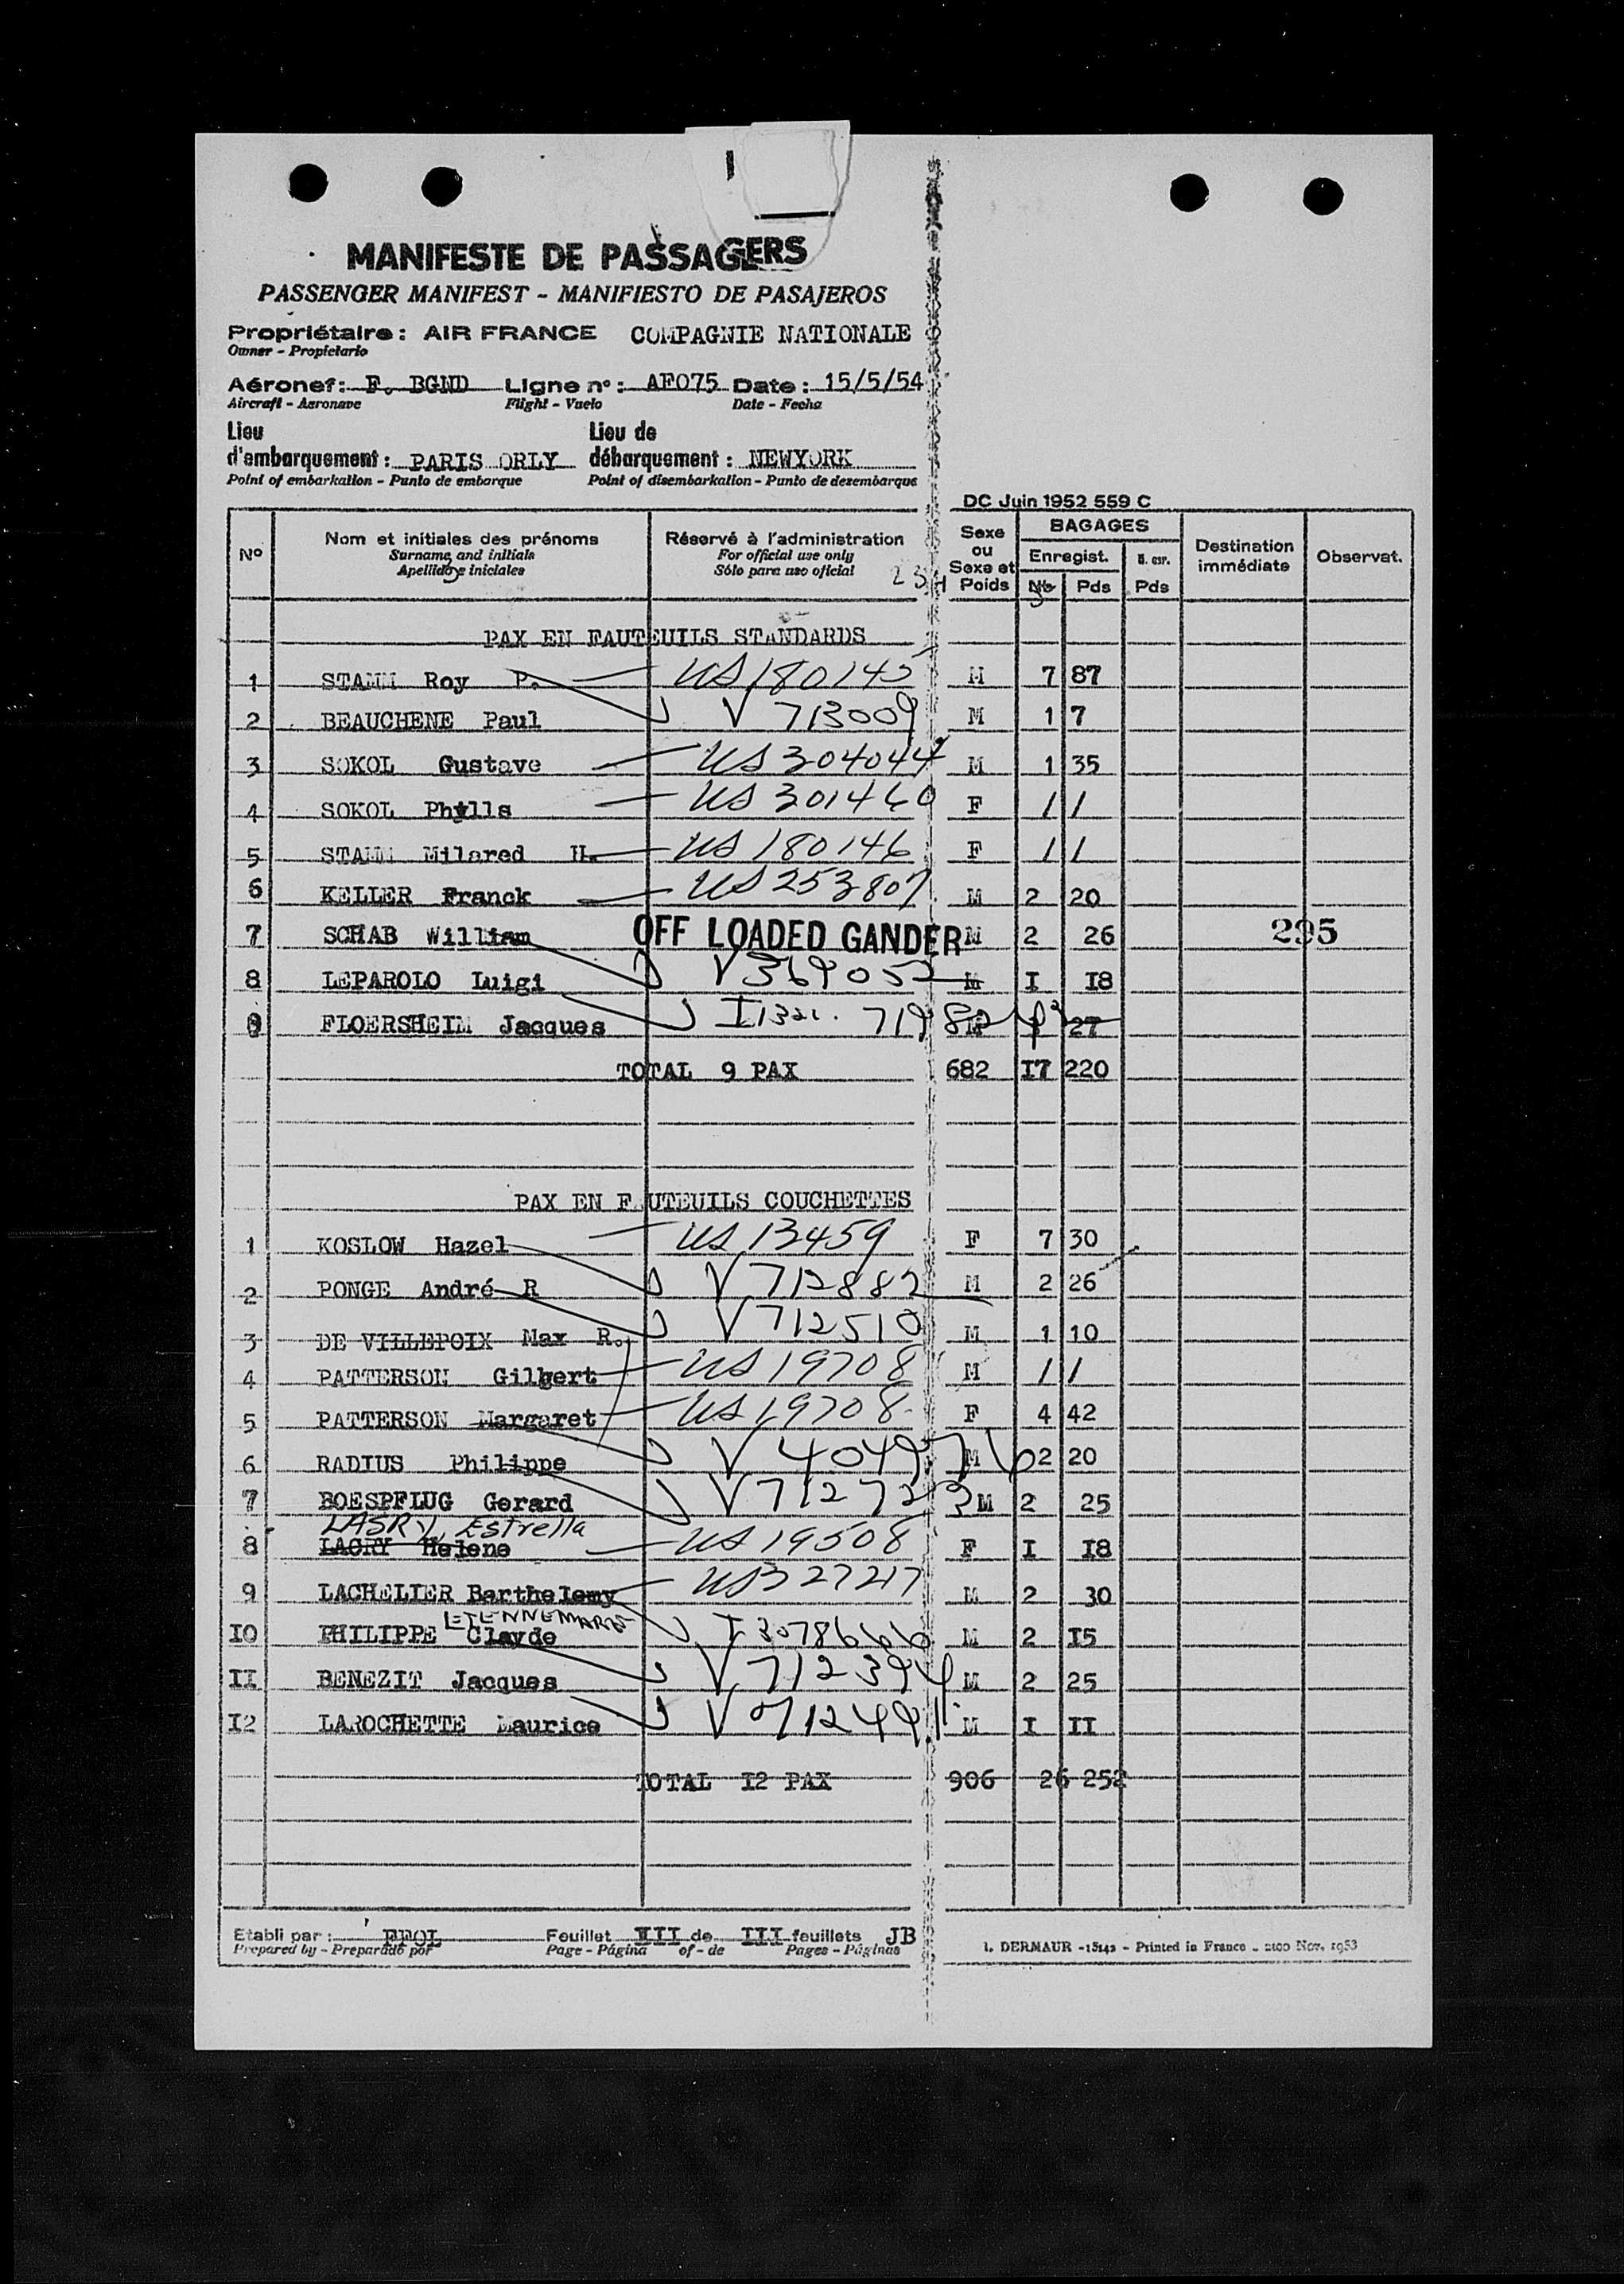 MANIFESTE DE PASSAGERS
PASSENGER MANIFEST - MANIFIESTO DE PASAJEROS
Propriétaire : AIR FRANCE COMPAGNIE NATIONALE
Owner - Propietario
Aéronef : F. BGND Ligne n° : AF075 Date : 15/5/54
Aircraft - Aeronave Flight - Vuelo Date - Fecha
Lieu d'embarquement : PARIS ORLY Lieu de débarquement : NEWYORK
Point of embarkation - Punto de embarque Point of disembarkation - Punto de desembarque
DC Juin 1952 559 C
N° Nom et initiales des prénoms Réservé à l'administration Sexe ou Sexe et Poids BAGAGES Destination immédiate Observat.
Surname and initials For official use only Enregist.
Apellido e iniciales Sólo para uso oficial 234 Nb Pds Pds
PAX EN FAUTEUILS STANDARDS
1 STAMM Roy P. US 180145 M 7 87
2 BEAUCHENE Paul V 713009 M 1 7
3 SOKOL Gustave US 304044 M 1 35
4 SOKOL Phylls US 301460 F / /
5 STAMM Milared H. US 180146 F / /
6 KELLER Franck US 253807 M 2 20
7 SCHAB William OFF LOADED GANDER M 2 26 295
8 LEPAROLO Luigi V 369052 M I I8
9 FLOERSHEIM Jacques 27
TOTAL 9 PAX 682 I7 220
PAX EN FAUTEUILS COUCHETTES
1 KOSLOW Hazel US 13459 F 7 30
2 PONGE André R V 712882 M 2 26
3 DE VILLEPOIX Max R. V 712510 M 1 10
4 PATTERSON Gilbert US 19708 M / /
5 PATTERSON Margaret US 19708 F 4 42
6 RADIUS Philippe V 404976 M 2 20
7 BOESPFLUG Gerard V 712723 M 2 25
LASRY, Estrella
8 LACRY Helene US 19508 F I I8
9 LACHELIER Barthelemy US 327217 M 2 30
ETENNEMARIE
I0 PHILIPPE Clayde I 3078666 M 2 I5
II BENEZIT Jacques V 712394 M 2 25
I2 LAROCHETTE Maurice V 712491 M I II
TOTAL I2 PAX 906 26 252
Etabli par : Feuillet III de III feuillets JB
Prepared by - Preparado por Page - Página of - de Pages - Páginas
I. DERMAUR - 15142 - Printed in France - 2100 Nov. 1953